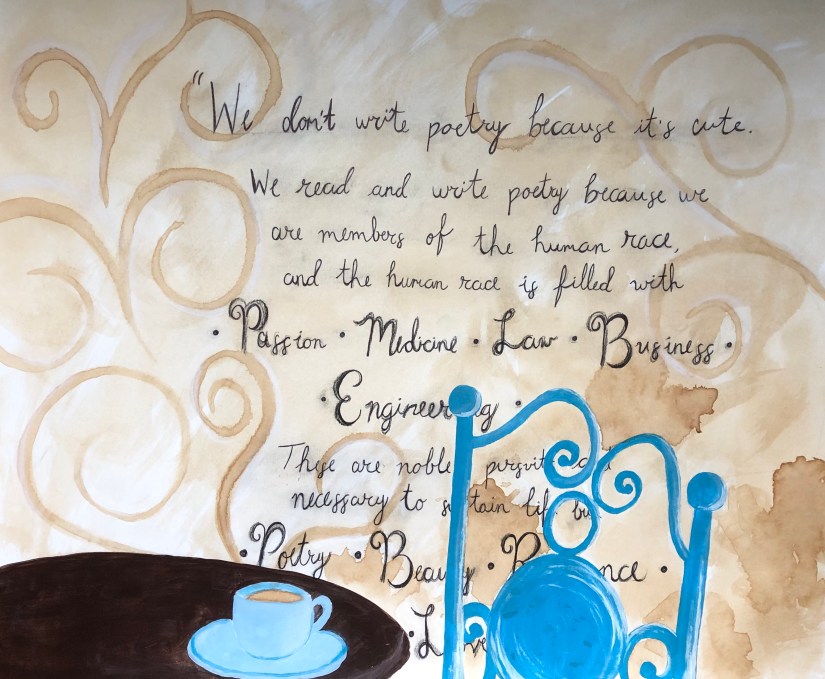 "We don't write poetry because it's cute.
We read and write poetry because we
are members of the human race,
and the human race is filled with
· Passion · Medicine · Law · Business ·
· Engineering ·
These are noble pursuits and
necessary to sustain life but
· Poetry · Beauty · Romance ·
· Love